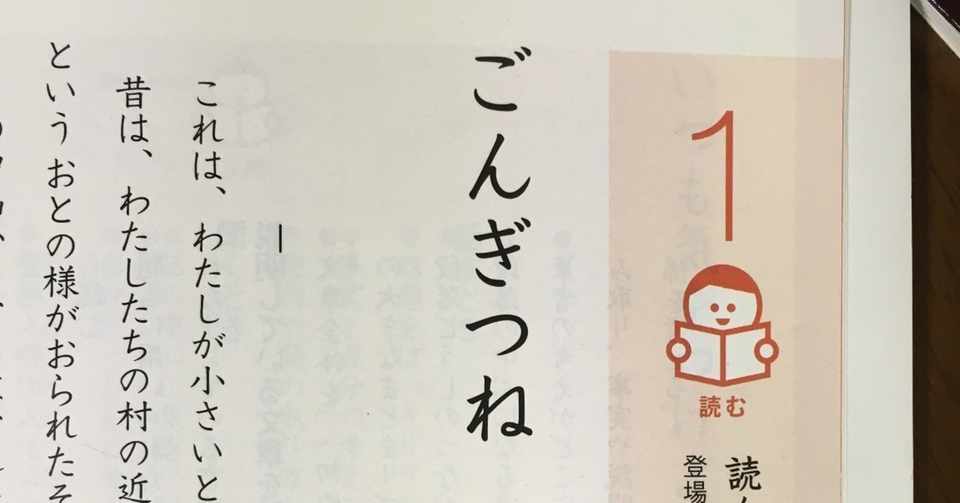 1
読む
読
登場
ごんぎつね
一
これは、わたしが小さいと
昔は、わたしたちの村の近
というおとの様がおられたそ